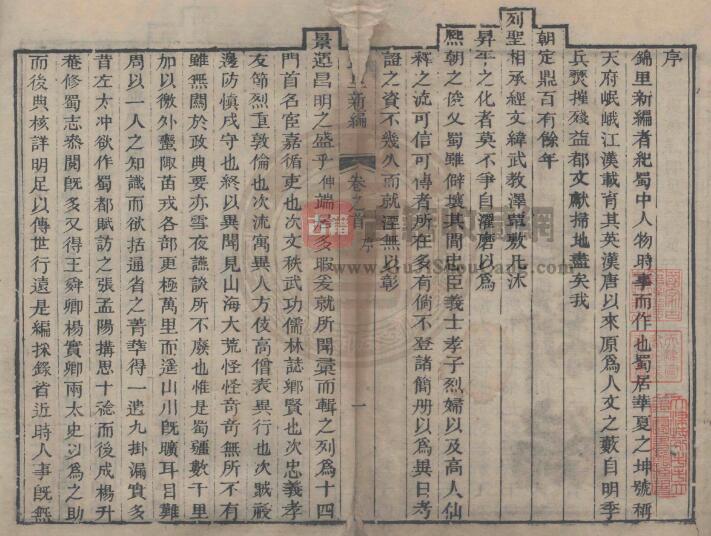 序
錦里新編者紀蜀中人物時事而作也蜀居華夏之坤號稱
天府岷峨江漢載育其英漢唐以來原爲人文之藪自明季
兵燹摧殘益都文獻掃地盡矣我
朝定鼎百有餘年
列聖相承經文緯武教澤覃敷凡沐
昇平之化者莫不爭自濯磨以爲
熈朝之俊乂蜀雖僻壤其間忠臣義士孝子烈婦以及高人仙
釋之流可信可傳者所在多有倘不登諸簡册以爲異日考
證之資不幾久而就湮無以彰
景運昌明之盛乎伸端居多暇爰就所聞彙而輯之列爲十四
門首名宦嘉循吏也次文秩武功儒林誌鄉賢也次忠義孝
友節烈重敦倫也次流寓異人方伎高僧表異行也次賊祲
邊防慎戌守也終以異聞見山海大荒怪怪奇奇無所不有
雖無關於政典要亦雪夜讌談所不廢也惟是蜀疆數千里
加以徼外蠻陬苗戎各部更極萬里而遥山川旣曠耳目難
周以一人之知識而欲括通省之菁華得一遺九掛漏實多
昔左太冲欲作蜀都賦訪之張孟陽搆思十稔而後成楊升
菴修蜀志叅閱旣多又得王舜卿楊實卿兩太史以爲之助
而後典核詳明足以傳世行遠是編採錄省近時人事旣無
新編
卷之首
序
一
古籍
www.GuJiShouCang.com